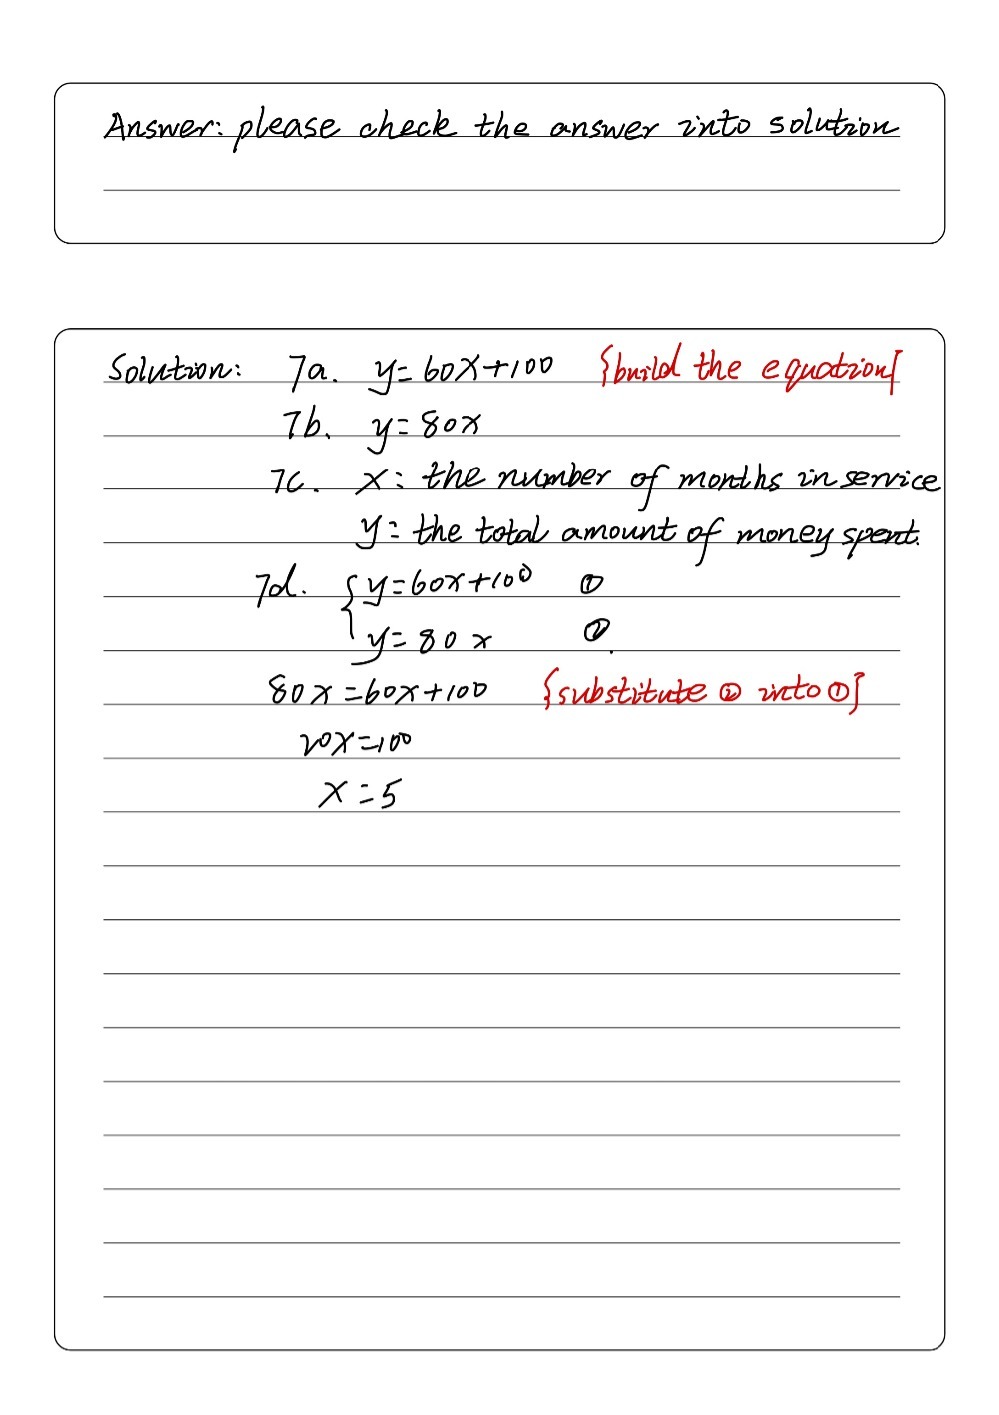 Answer: please check the answer into solution
Solution: 7a. y=60x+100 {build the equation}
7b. y=80x
7c. x: the number of months in service
y: the total amount of money spent.
7d. { y=60x+100 ①
y=80x ②.
80x=60x+100 {substitute ② into ①}
20x=100
x=5